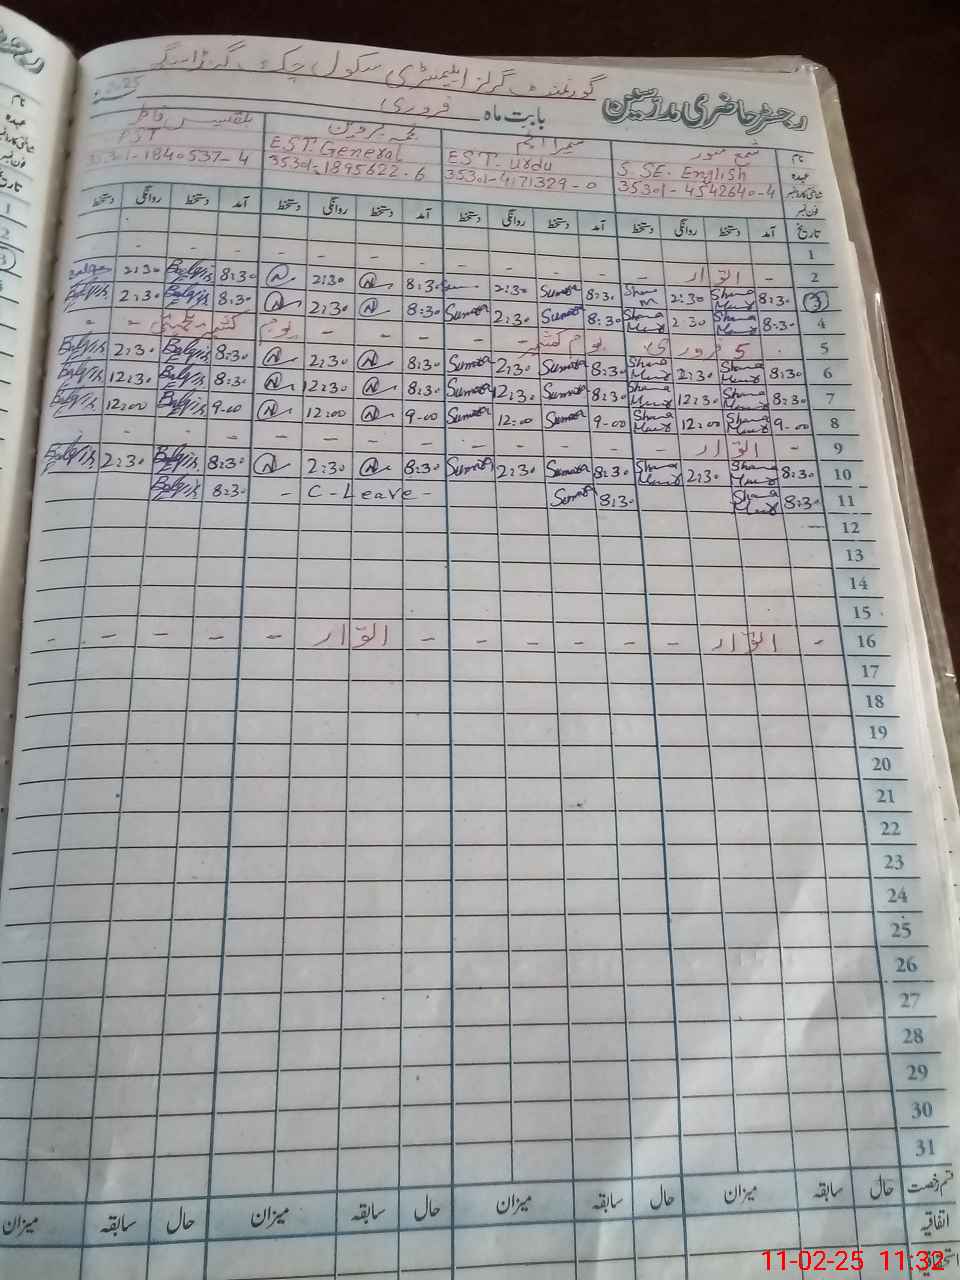 گورنمنٹ گرلز ایلیمنٹری سکول چک
رجسٹر حاضری مدرسین
بابت ماہ فروری 2025ء
نام شمع منور سمیرا انجم نجمہ پروین بلقیس فاطمہ
عہدہ S.SE. English EST. Urdu EST. General PST
شناختی کارڈ نمبر 35301-4542640-4 35301-4171329-0 35301-1895622-6 35301-1840537-4
فون نمبر
تاریخ آمد دستخط روانگی دستخط آمد دستخط روانگی دستخط آمد دستخط روانگی دستخط آمد دستخط روانگی دستخط
1 - - - - - - - - -
2 - اتوار - - - - - - -
3 8:30 Shama 2:30 Shama 8:30 Sumera 2:30 8:30 2:30 8:30 Balqis 2:30
4 8:30 Shama 2:30 Shama 8:30 Sumera 2:30 Sumera 8:30 2:30 8:30 Balqis 2:30 Balqis
5 5 فروری یوم کشمیر - - - یوم کشمیر - -
6 8:30 Shama 2:30 Shama 8:30 Sumera 2:30 Sumera 8:30 2:30 8:30 Balqis 2:30 Balqis
7 8:30 Shama 12:30 Shama 8:30 Sumera 12:30 Sumera 8:30 12:30 8:30 Balqis 12:30 Balqis
8 9-00 Shama 12:00 Shama 9-00 Sumera 12:00 Sumera 9-00 12:00 9-00 Balqis 12:00 Balqis
9 - اتوار - - - - - - -
10 8:30 Shama 2:30 Shama 8:30 Sumera 2:30 Sumera 8:30 2:30 8:30 Balqis 2:30 Balqis
11 8:30 Shama 8:30 Sumera - C-Leave - 8:30 Balqis
12 -
13
14
15
16 - اتوار - - - - - - اتوار - - - - -
17
18
19
20
21
22
23
24
25
26
27
28
29
30
31
قسم رخصت حال سابقہ میزان حال سابقہ میزان حال سابقہ میزان حال سابقہ میزان
اتفاقیہ
11-02-25 11:32